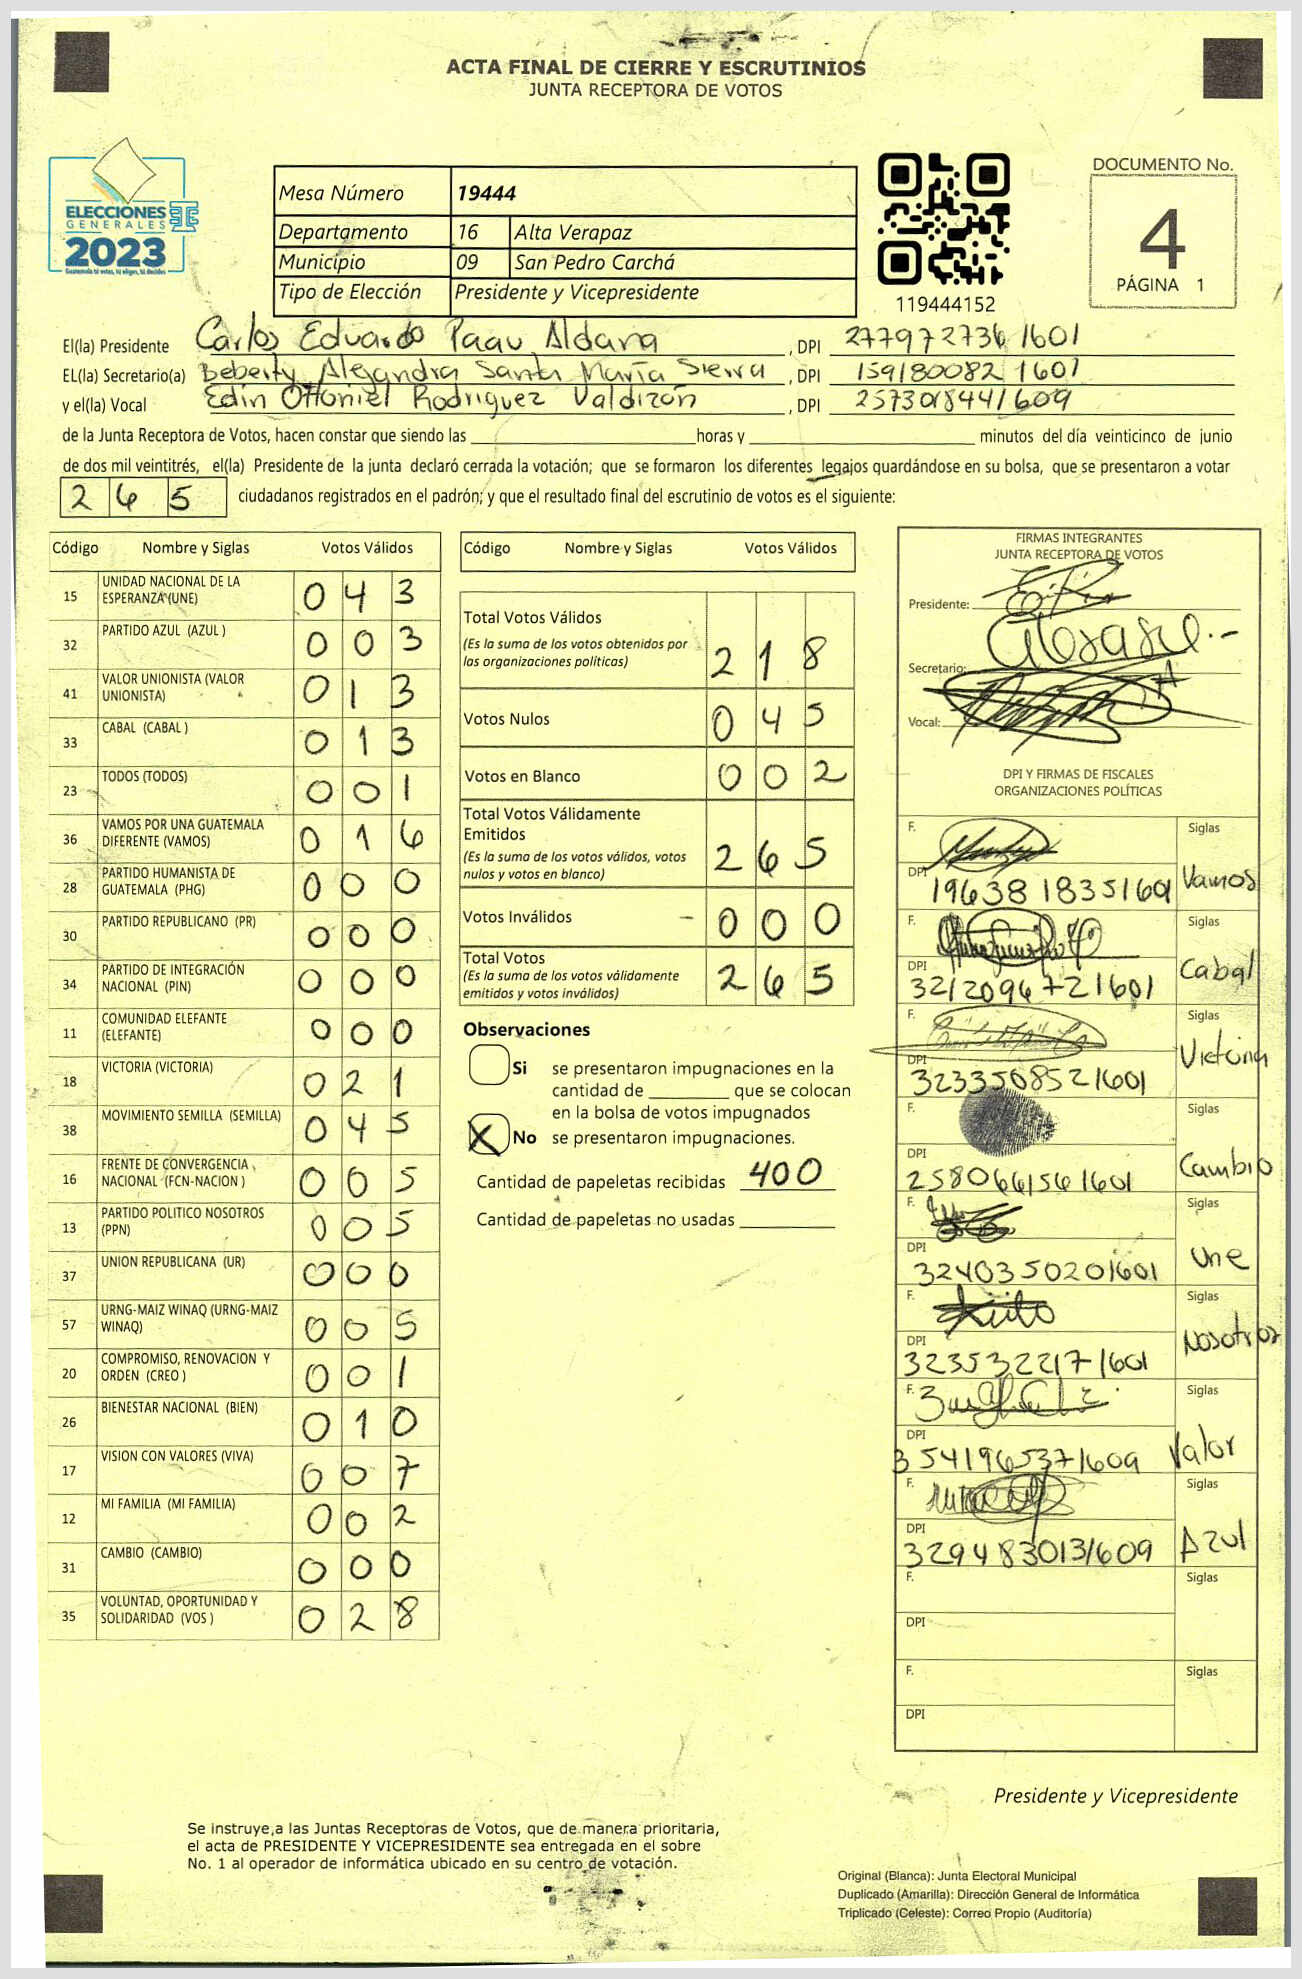 ACTA FINAL DE CIERRE Y ESCRUTINIOS
JUNTA RECEPTORA DE VOTOS
ELECCIONES
GENERALES
2023
Guatemala tú votas, tú eliges, tú decides
Mesa Número 19444
Departamento 16 Alta Verapaz
Municipio 09 San Pedro Carchá
Tipo de Elección Presidente y Vicepresidente
119444152
DOCUMENTO No.
4
PÁGINA 1
El(la) Presidente Carlos Eduardo Paau Aldana, DPI 277972736 1601
EL(la) Secretario(a) Beberty Alejandra Santa María Sierra, DPI 159180082 1601
y el(la) Vocal Edin Ottoniel Rodriguez Valdizón, DPI 257301844 1609
de la Junta Receptora de Votos, hacen constar que siendo las horas y minutos del día veinticinco de junio
de dos mil veintitrés, el(la) Presidente de la junta declaró cerrada la votación; que se formaron los diferentes legajos guardándose en su bolsa, que se presentaron a votar
265 ciudadanos registrados en el padrón; y que el resultado final del escrutinio de votos es el siguiente:
Código Nombre y Siglas Votos Válidos
15 UNIDAD NACIONAL DE LA ESPERANZA (UNE) 043
32 PARTIDO AZUL (AZUL ) 003
41 VALOR UNIONISTA (VALOR UNIONISTA) 013
33 CABAL (CABAL ) 013
23 TODOS (TODOS) 001
36 VAMOS POR UNA GUATEMALA DIFERENTE (VAMOS) 016
28 PARTIDO HUMANISTA DE GUATEMALA (PHG) 000
30 PARTIDO REPUBLICANO (PR) 000
34 PARTIDO DE INTEGRACIÓN NACIONAL (PIN) 000
11 COMUNIDAD ELEFANTE (ELEFANTE) 000
18 VICTORIA (VICTORIA) 021
38 MOVIMIENTO SEMILLA (SEMILLA) 045
16 FRENTE DE CONVERGENCIA NACIONAL (FCN-NACION ) 005
13 PARTIDO POLITICO NOSOTROS (PPN) 005
37 UNION REPUBLICANA (UR) 000
57 URNG-MAIZ WINAQ (URNG-MAIZ WINAQ) 005
20 COMPROMISO, RENOVACION Y ORDEN (CREO ) 001
26 BIENESTAR NACIONAL (BIEN) 010
17 VISION CON VALORES (VIVA) 007
12 MI FAMILIA (MI FAMILIA) 002
31 CAMBIO (CAMBIO) 000
35 VOLUNTAD, OPORTUNIDAD Y SOLIDARIDAD (VOS ) 028
Código Nombre y Siglas Votos Válidos
Total Votos Válidos
(Es la suma de los votos obtenidos por
las organizaciones políticas) 218
Votos Nulos 045
Votos en Blanco 002
Total Votos Válidamente
Emitidos
(Es la suma de los votos válidos, votos
nulos y votos en blanco) 265
Votos Inválidos 000
Total Votos
(Es la suma de los votos válidamente
emitidos y votos inválidos) 265
Observaciones
Si se presentaron impugnaciones en la
cantidad de que se colocan
en la bolsa de votos impugnados
X No se presentaron impugnaciones.
Cantidad de papeletas recibidas 400
Cantidad de papeletas no usadas
FIRMAS INTEGRANTES
JUNTA RECEPTORA DE VOTOS
Presidente:
Secretario:
Vocal:
DPI Y FIRMAS DE FISCALES
ORGANIZACIONES POLÍTICAS
F. Siglas
DPI 196381835 1601 Vamos
F. Siglas
DPI 321209672 1601 Cabal
F. Siglas
DPI 323350852 1601 Victoria
F. Siglas
DPI 258066156 1601 Cambio
F. Siglas
DPI 324035020 1601 Une
F. Siglas
DPI 323532217 1601 Nosotros
F. Siglas
DPI 354196537 1609 Valor
F. Siglas
DPI 329483013 1609 Azul
F. Siglas
DPI
F. Siglas
DPI
Presidente y Vicepresidente
Se instruye a las Juntas Receptoras de Votos, que de manera prioritaria,
el acta de PRESIDENTE Y VICEPRESIDENTE sea entregada en el sobre
No. 1 al operador de informática ubicado en su centro de votación.
Original (Blanca): Junta Electoral Municipal
Duplicado (Amarilla): Dirección General de Informática
Triplicado (Celeste): Correo Propio (Auditoría)